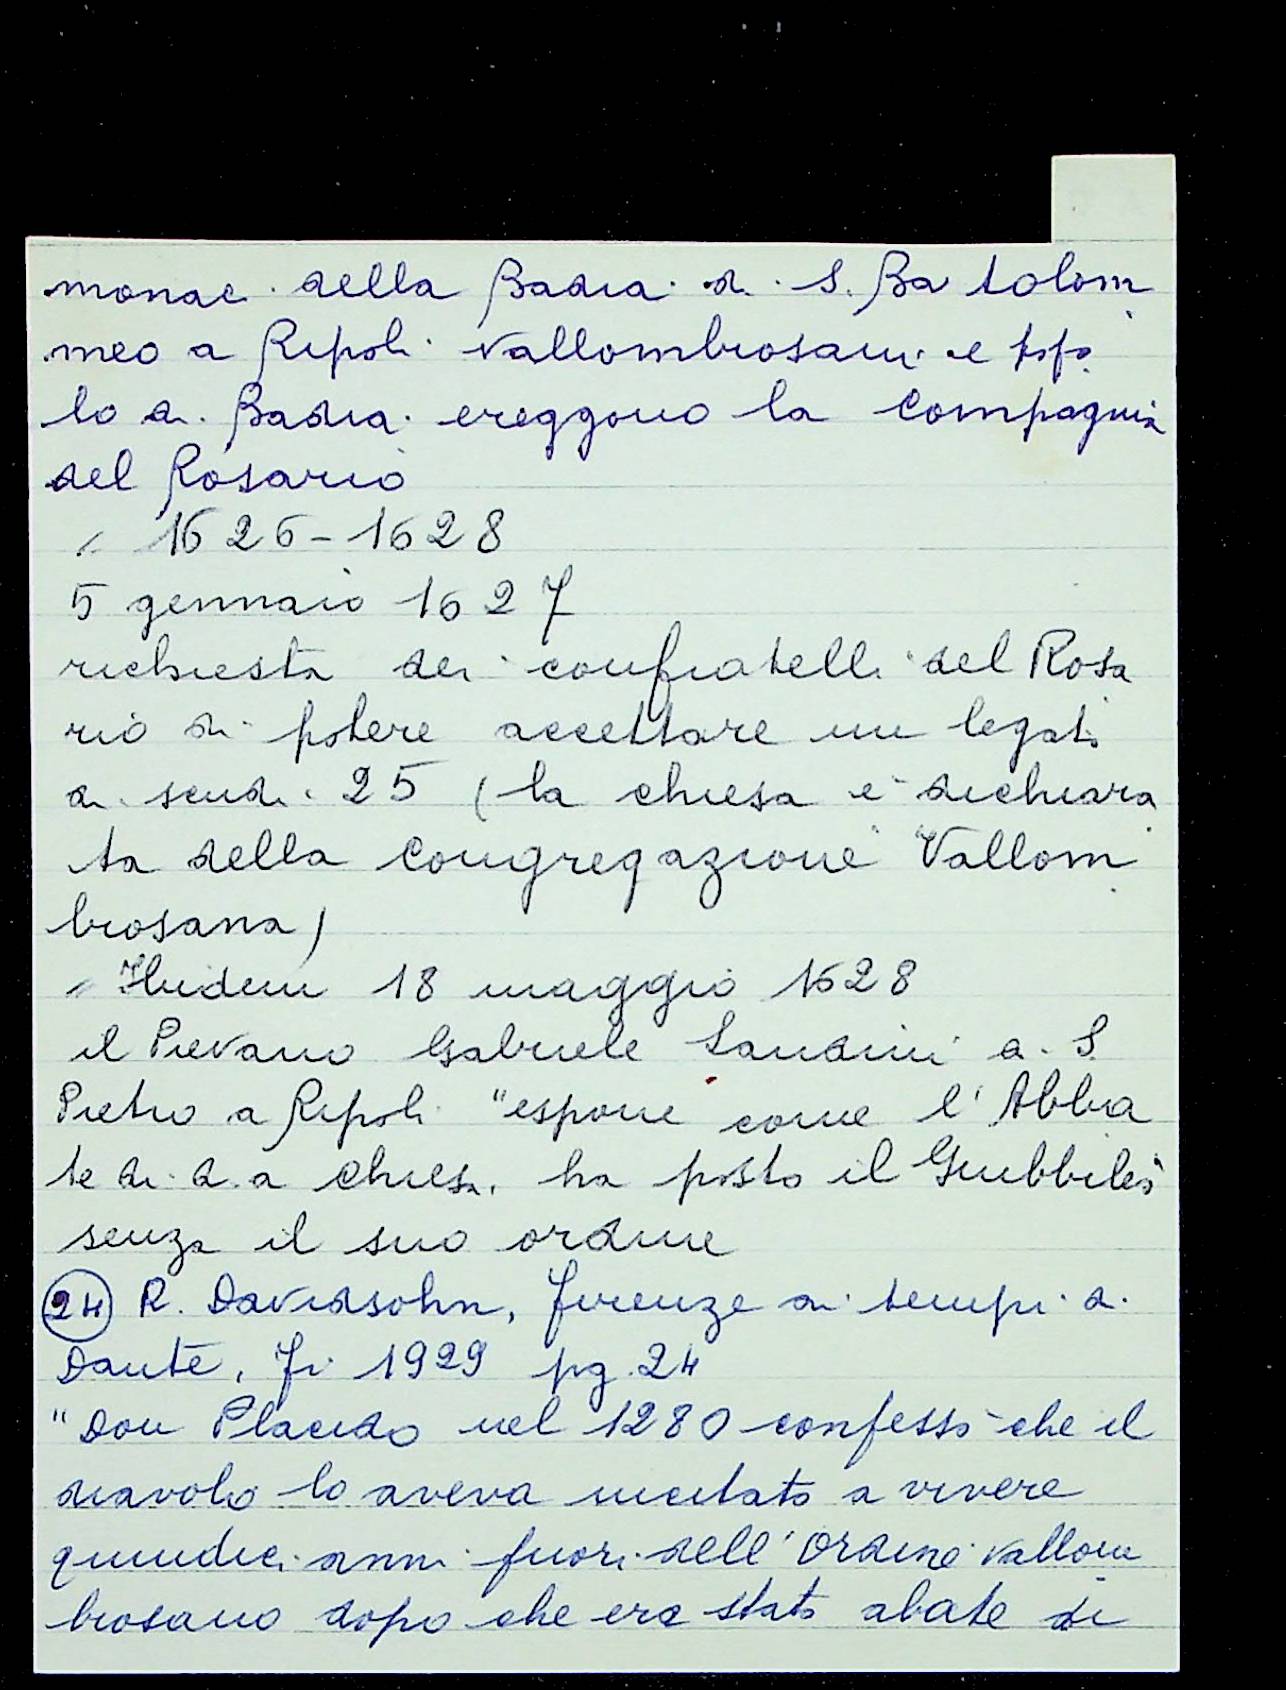 monaci della Badia di S. Bartolom
meo a Ripoli vallombrosani e popo
lo di Badia ereggono la Compagnia
del Rosario
" 1626-1628
5 gennaio 1627
richiesta dei confratelli del Rosa
rio di potere accettare un legato
di scudi 25 (la chiesa è dichiara
ta della Congregazione Vallom
brosana)
" Ibidem 18 maggio 1628
il Pievano Gabriele Landini di S.
Pietro a Ripoli "espone come l'Abba
te di d.a chiesa, ha posto il Giubbileo
senza il suo ordine
24 R. Davidsohn, Firenze ai tempi di
Dante, Fi 1929 pg. 24
"Don Placido nel 1280 confessò che il
diavolo lo aveva incitato a vivere
quindici anni fuori dell'Ordine vallom
brosano dopo che era stato abate di